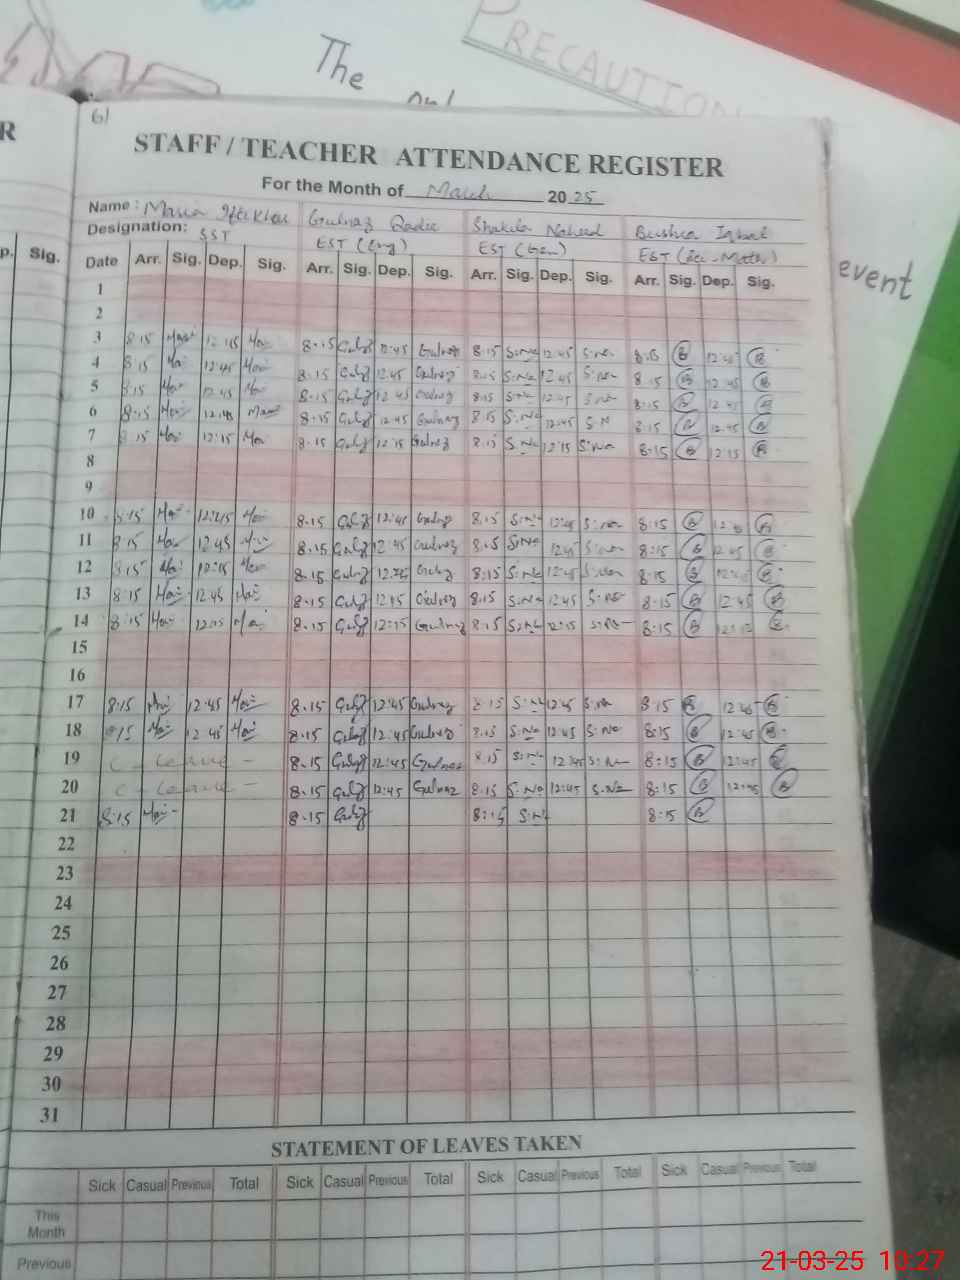 PRECAUTION
The
event
61
R
STAFF / TEACHER ATTENDANCE REGISTER
For the Month of March 2025
Name: Maria Iftikhar Gulnaz Qadir Shakila Naheed Bushra Iqbal
Designation: SST EST (Eng) EST (Gen) EST (Sci-Math)
p. Sig. Date Arr. Sig. Dep. Sig. Arr. Sig. Dep. Sig. Arr. Sig. Dep. Sig. Arr. Sig. Dep. Sig.
1
2
3 8:15 12:45 8.15 Gulz 12:45 Gulnaz 8.15 S.Na 12:45 S.Na 8:15 B 12:45 B
4 8:15 12:45 8.15 Gulz 12:45 Gulnaz 8.15 S.Na 12:45 S.Na 8:15 B 12:45 B
5 8:15 12:45 8.15 Gulz 12:45 Gulnaz 8.15 S.Na 12:45 S.Na 8:15 B 12:45 B
6 8:15 12:45 8.15 Gulz 12:45 Gulnaz 8.15 S.Na 12:45 S.N 8:15 B 12:45 B
7 8:15 12:15 8.15 Gulz 12:15 Gulnaz 8.15 S.Na 12:15 S.Na 8:15 B 12:15 B
8
9
10 8:15 12:45 8.15 Gulz 12:45 Gulnaz 8.15 S.Na 12:45 S.Na 8:15 B B
11 8:15 12:45 8.15 Gulz 12:45 Gulnaz 8.15 S.Na 12:45 S.Na 8:15 B 12:45 B
12 8:15 8.15 Gulz Gulnaz 8:15 S.Na 12:45 S.Na 8:15 B B
13 8:15 12:45 8.15 Gulz 12:45 Gulnaz 8.15 S.Na 12:45 S.Na 8:15 B 12:45 B
14 8:15 12:15 8.15 Gulz 12:15 Gulnaz 8.15 S.Na 12:15 S.Na 8:15 B 12:15 B
15
16
17 8:15 12:45 8.15 Gulz 12:45 Gulnaz 8.15 S.Na 12:45 S.Na 8:15 B 12:45 B
18 8:15 12:45 8.15 Gulz 12:45 Gulnaz 8.15 S.Na 12:45 S.Na 8:15 B 12:45 B
19 C - Leave - 8.15 Gulz 12:45 Gulnaz 8.15 S.Na 12:45 S.Na 8:15 B 12:45 B
20 C - Leave - 8.15 Gulz 12:45 Gulnaz 8.15 S.Na 12:45 S.Na 8:15 B 12:45 B
21 8:15 8.15 Gulz 8:15 S.N 8:15 B
22
23
24
25
26
27
28
29
30
31
STATEMENT OF LEAVES TAKEN
Sick Casual Previous Total Sick Casual Previous Total Sick Casual Previous Total Sick Casual Previous Total
This
Month
Previous
21-03-25 10:27